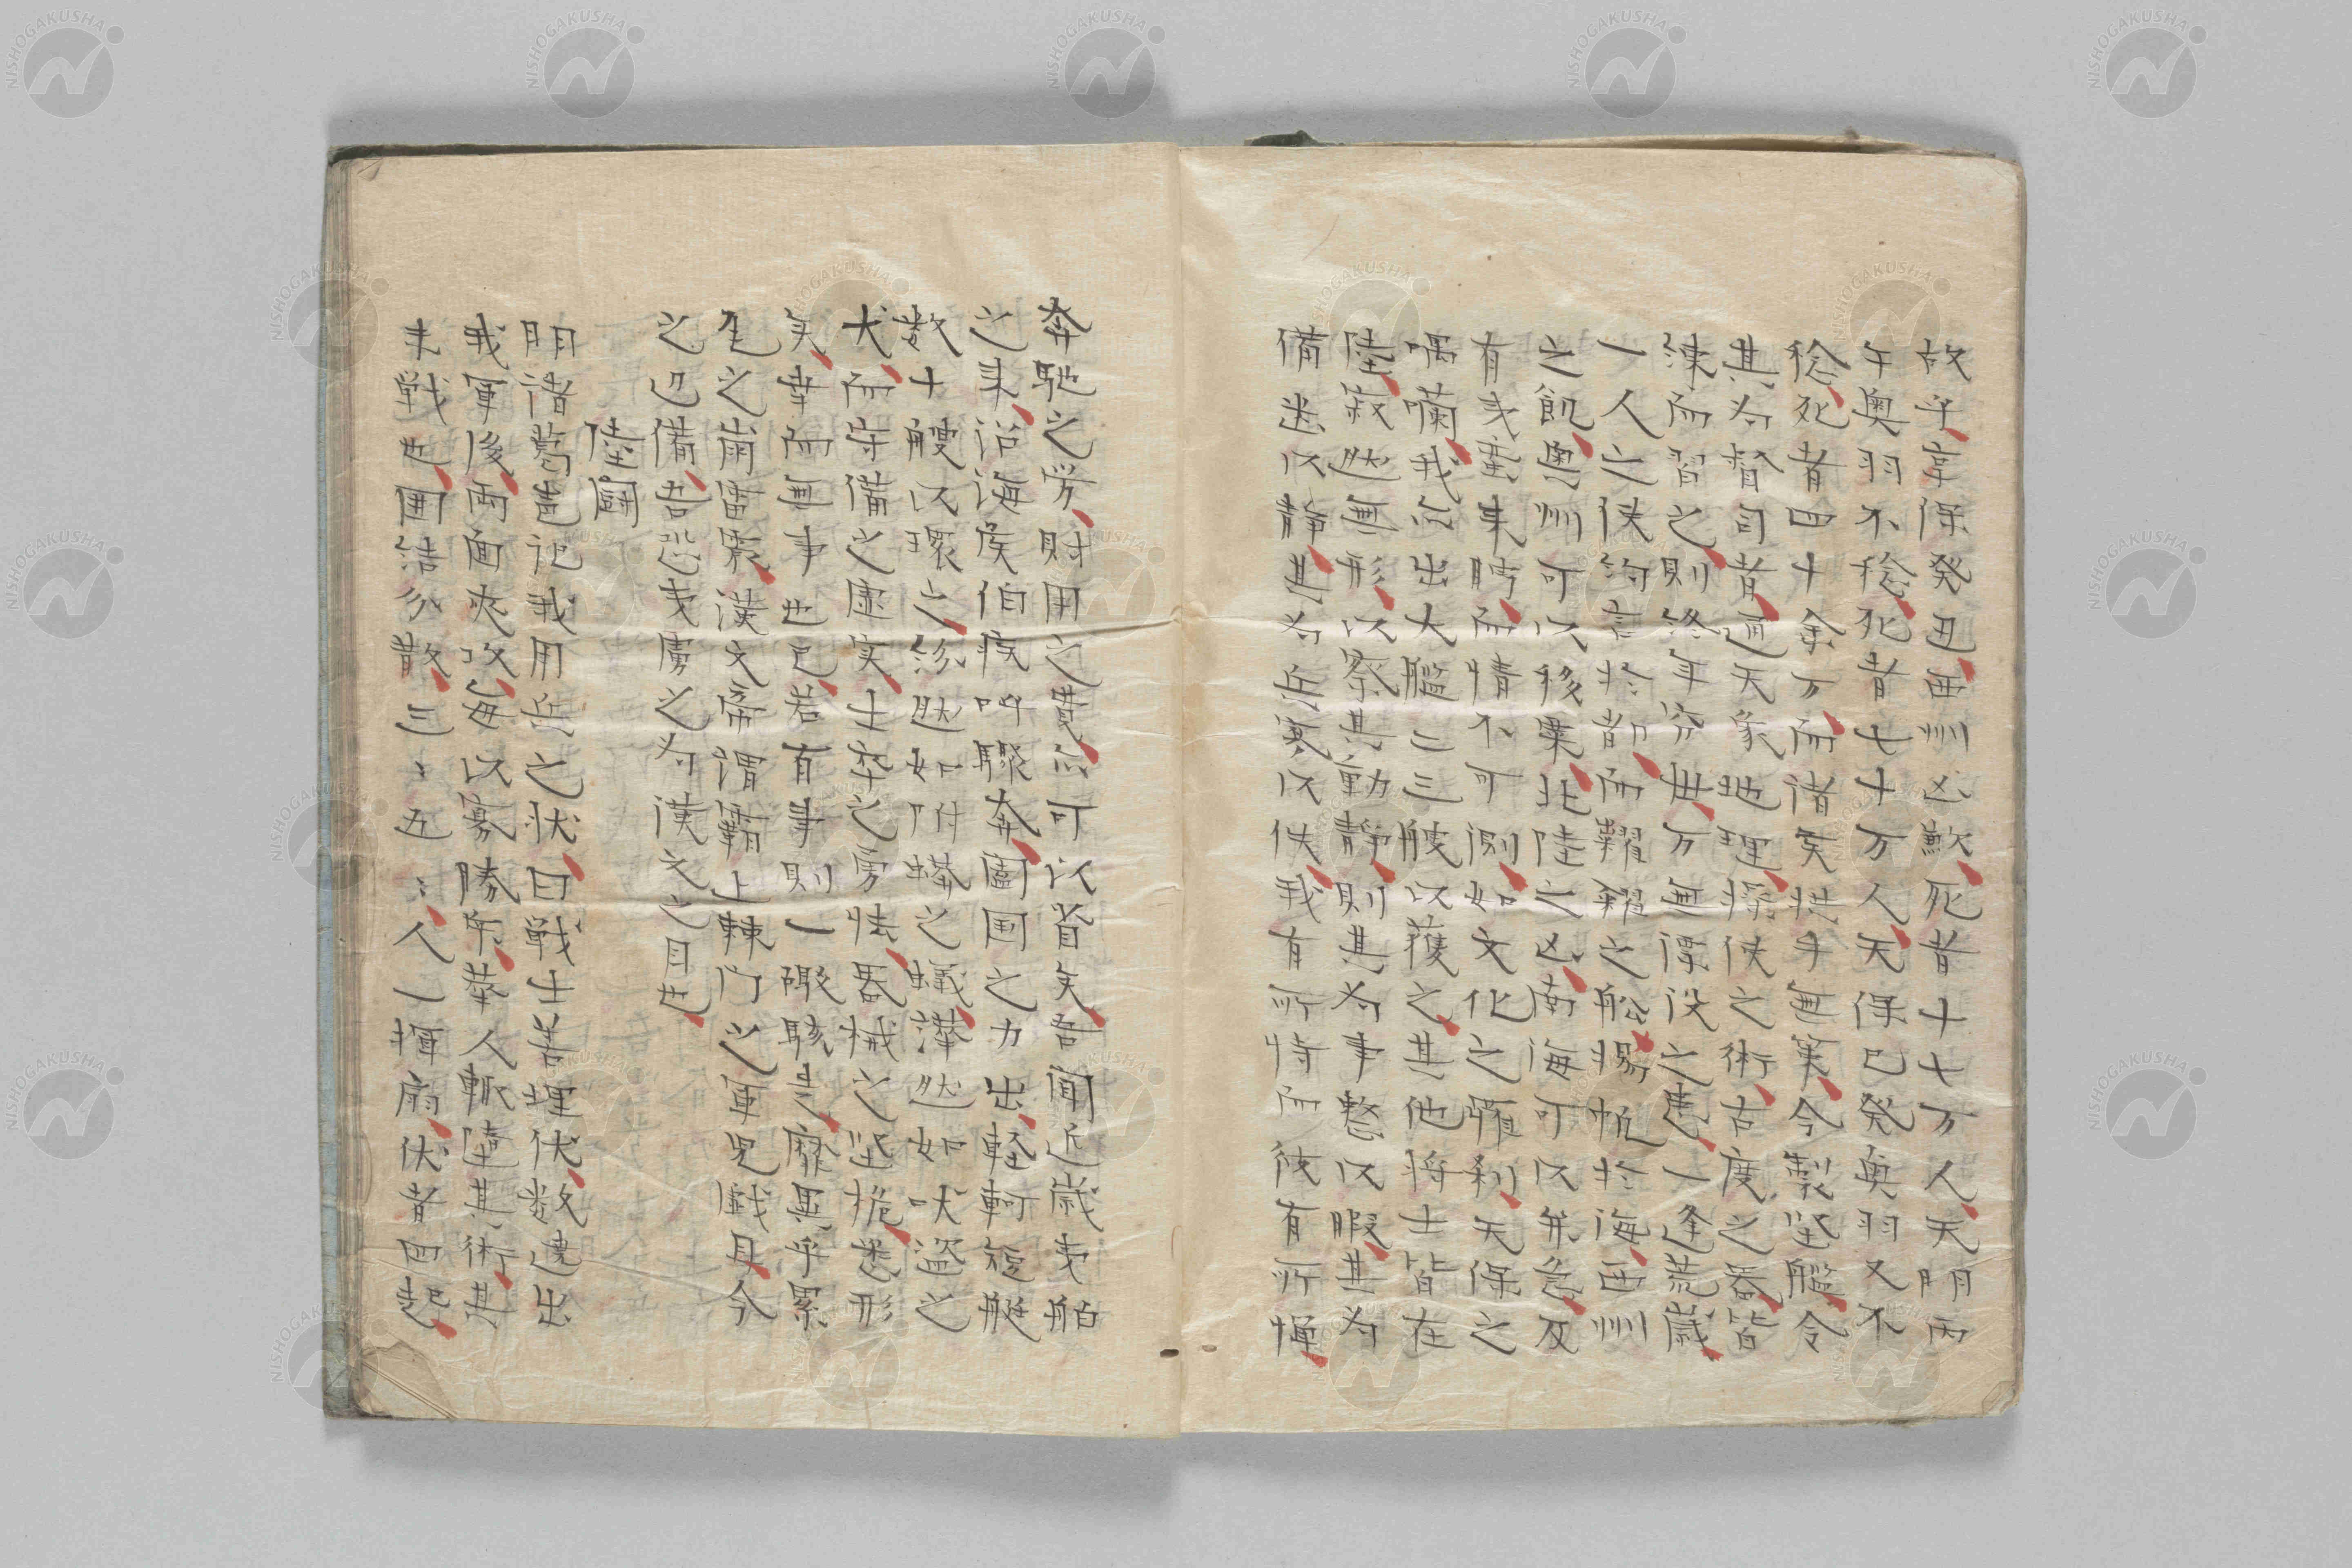 故乎享保癸丑西州凶歉死者十七万人天明丙
午奥羽不稔死者七十万人天保巳癸奥羽又不
稔死者四十余万而諸矦拱手無策今製堅艦令
其為督司者通天象地理操伏之術古度之器皆
練而習之則終年穷世万無漂没之患一逢荒歳
一人之使約言於都而糶糴之舩揚帆於海西州
之飢奥州可以移粟北陸之凶南海可以弁急及
有夷蛮来時而情不可測如文化之羅利天保之
喁嘣我亦出大艦二三艘以護之其他将士皆在
陸寂然無形以察其動静則其為事整以暇其為
備逸以静其為兵寡以伏我有所恃而彼有所憚
奔馳之労財用之費亦可以省矣吾聞近歳夷舶
之来沿海矦伯疾呼驟奔園国之力出軽軻短艇
数十艘以環之紛然如附蟻之蟻漭然如吠盗之
犬而守備之虚实士卒之勇怯器械之堅脆悉形
矣幸而無事也已若有事則一礟駭走靡異乎累
卵之崩雷震漢文帝謂霸上棘門之軍児戯耳今
之辺備吾恐夷虜之為漢文之目也
陸闘
明諸葛邕記我用兵之状曰戦士善埋伏数遶出
我軍後両面夾攻毎以寡勝衆華人輒堕其術其
未戦也囲結分散三〻五〻人一揮扇伏者四起